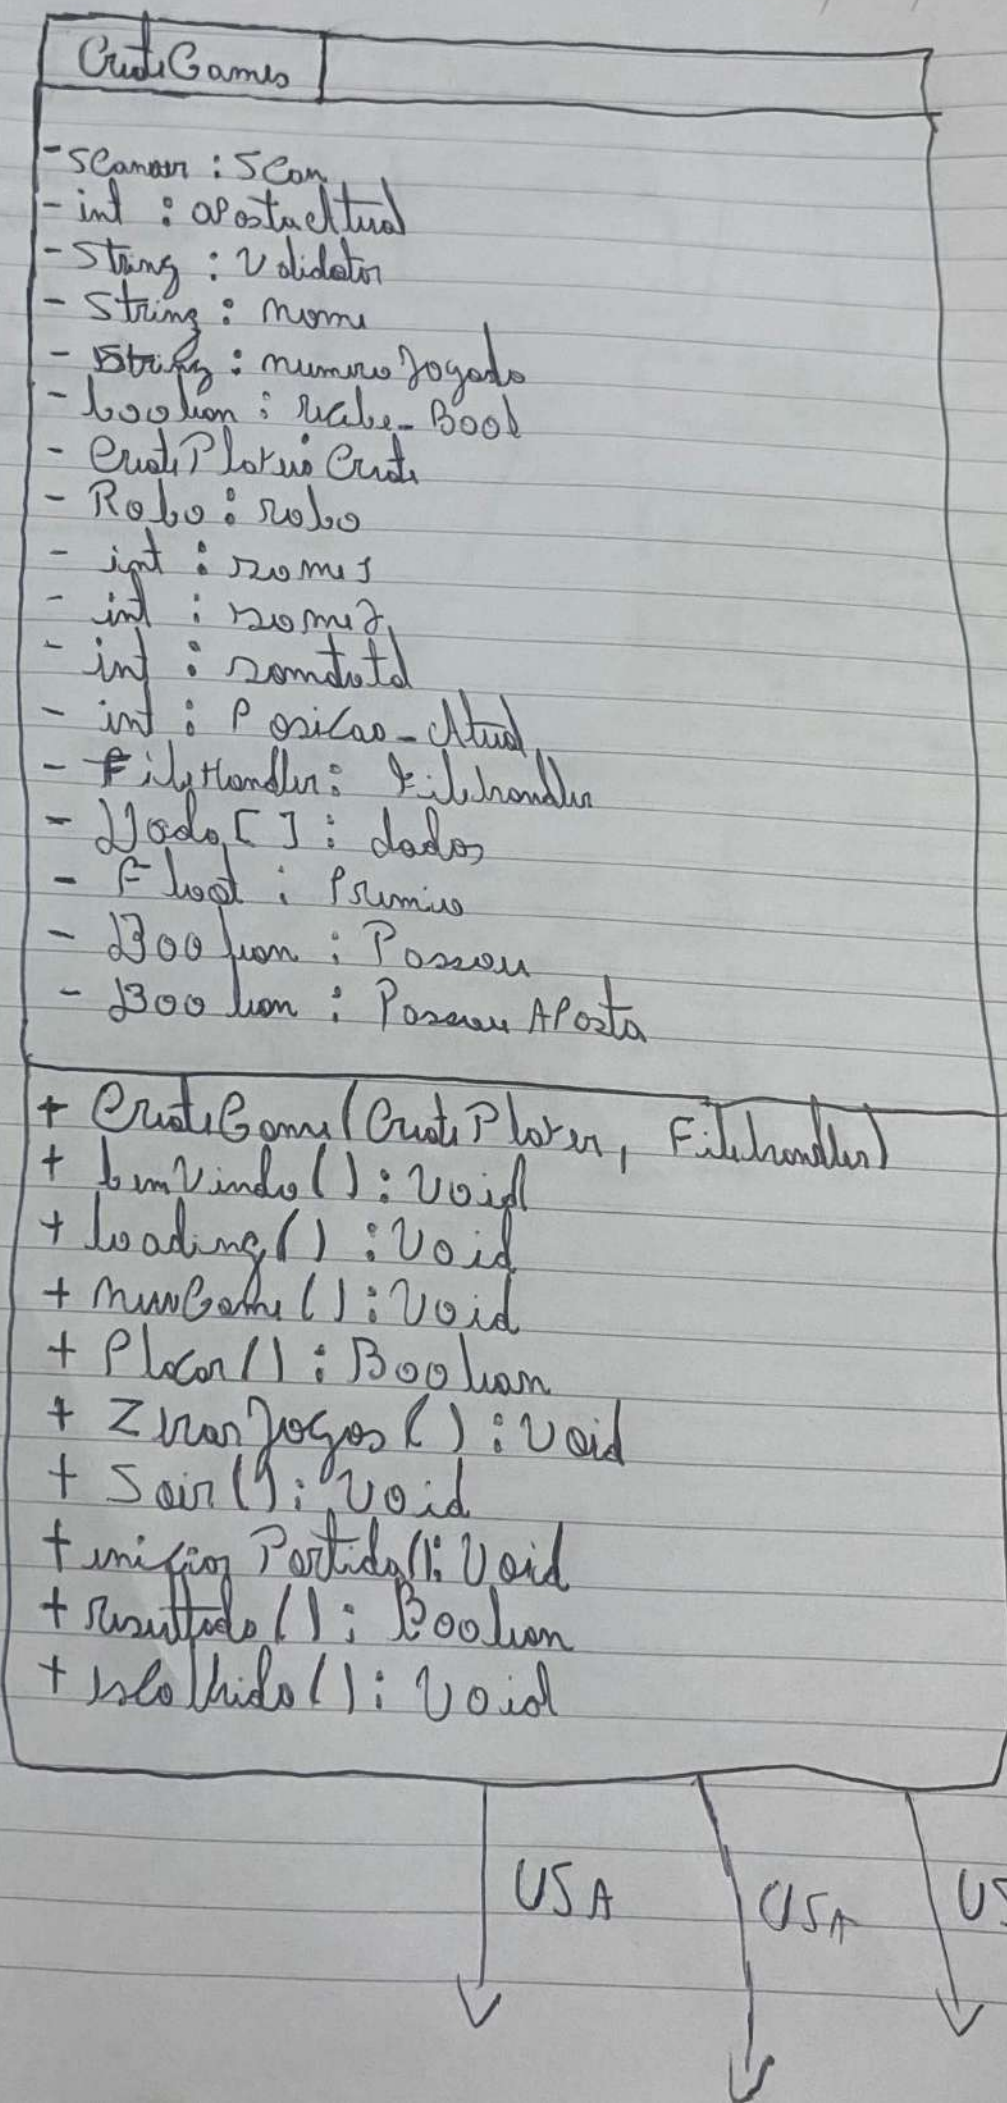 CreateGames
- Scanner : Scan
- int : apostaAtual
- String : Validator
- String : nome
- String : numeroJogado
- boolean : recebe_Bool
- CreatePlayer : Create
- Robo : robo
- int : some1
- int : some2
- int : somatotal
- int : Posicao_Atual
- FileHandler : Filehandler
- Dado[] : dados
- Float : Premio
- Boolean : Passou
- Boolean : PassouAPosta
+ CreateGame(CreatePlayer, Filehandler)
+ bemVindo() : Void
+ loading() : Void
+ newGame() : Void
+ Placar() : Boolean
+ ZerarJogos() : Void
+ Sair() : Void
+ iniciarPartida() : Void
+ resultado() : Boolean
+ escolhido() : Void
USA
USA
US